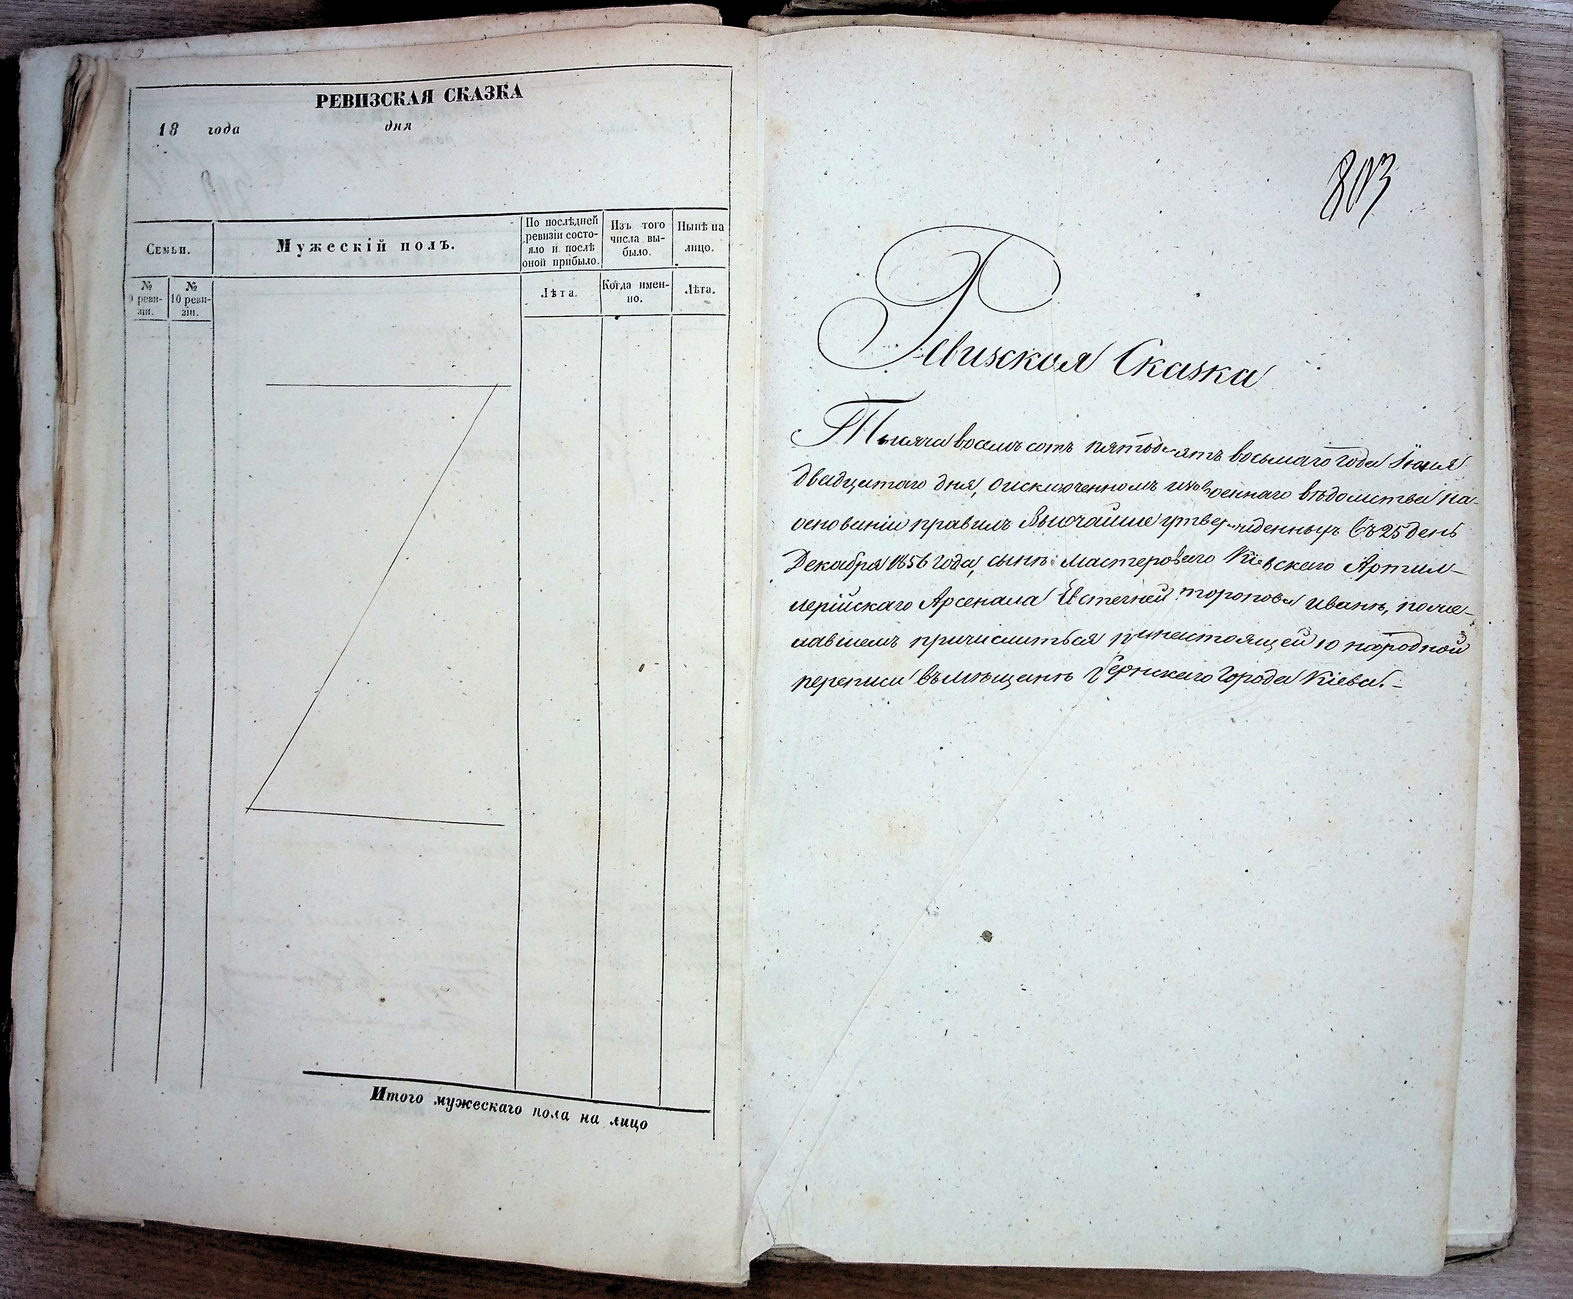 РЕВИЗСКАЯ СКАЗКА
18 года дня
Семьи.
Мужескій полъ.
По послѣдней
ревизіи состо-
яло и послѣ
оной прибыло.
Изъ того
числа вы-
было.
Нынѣ на
лицо.
№
9 реви-
зіи.
№
10 реви-
зіи.
Лѣта.
Когда имен-
но.
Лѣта.
Итого мужескаго пола на лицо
803
Ревизская Сказка
Тысяча восемь сотъ пятьдесятъ восьмаго года Іюня
двадцатаго дня, о исключенномъ изъ военнаго вѣдомства на
основаніи правилъ Высочайше утвержденныхъ въ 25 день
Декабря 1856 года, сынѣ мастероваго Кіевскаго Артил-
лерійскаго Арсенала Торопова Иванѣ, поже-
лавшемъ причислиться по настоящей 10 народной
переписи въ мѣщанѣ Губернскаго Города Кіева.-